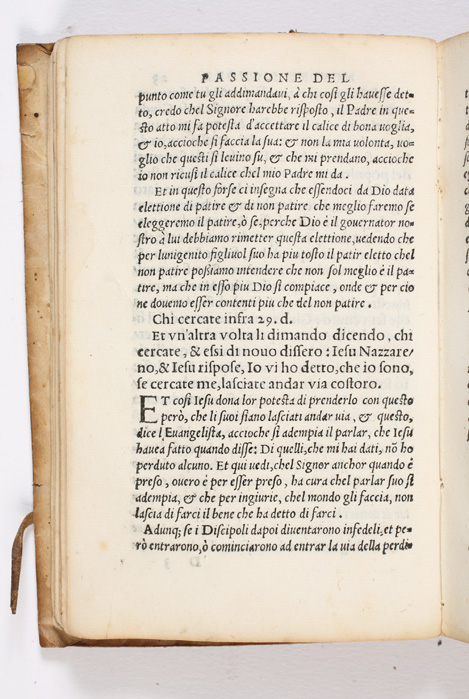 PASSIONE DEL
punto come tu gli addimandavi, à chi così gli havesse det-
to, credo chel Signore harebbe risposto, il Padre in que-
sto atto mi fa potestà d'accettare il calice di bona voglia,
& io, accioche si faccia la sua: & non la mia volonta, vo-
glio che questi si levino su, & che mi prendano, accioche
io non ricusi il calice chel mio Padre mi da.
Et in questo forse ci insegna che essendoci da Dio data
elettione di patire & di non patire che meglio faremo se
eleggeremo il patire, ò se, perche Dio è il governator no-
stro à lui debbiamo rimetter questa elettione, vedendo che
per lunigenito figliuol suo ha piu tosto il patir eletto chel
non patire possiamo intendere che non sol meglio è il pa-
tire, ma che in esso piu Dio si compiace, onde & per cio
ne dovemo esser contenti piu che del non patire.
Chi cercate infra 29. d.
Et vn'altra volta li dimando dicendo, chi
cercate, & essi di nouo dissero: Iesu Nazzare/
no, & Iesu rispose, Io vi ho detto, che io sono,
se cercate me, lasciate andar via costoro.
ET così Iesu dona lor potesta di prenderlo con questo
però, che li suoi siano lasciati andar via, & questo,
dice l'Evangelista, accioche si adempia il parlar, che Iesu
havea fatto quando disse: Di quelli, che mi hai dati, nõ ho
perduto alcuno. Et qui vedi, chel Signor anchor quando è
preso, overo è per esser preso, ha cura chel parlar suo si
adempia, & che per ingiurie, chel mondo gli faccia, non
lascia di farci il bene che ha detto di farci.
Adunq; se i Discipoli dapoi diventarono infedeli, et pe-
rò entrarono, ò cominciarono ad entrar la via della perdi-